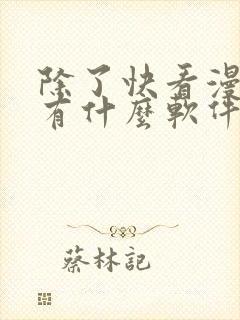 除了快看漫
有什麼軟件
蔡林記